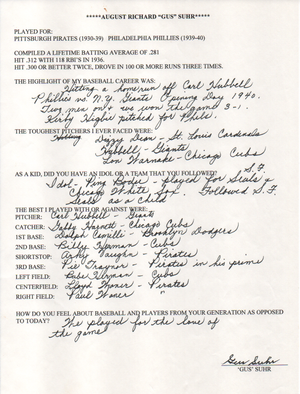 *****AUGUST RICHARD "GUS" SUHR*****
PLAYED FOR:
PITTSBURGH PIRATES (1930-39) PHILADELPHIA PHILLIES (1939-40)
COMPILED A LIFETIME BATTING AVERAGE OF .281
HIT .312 WITH 118 RBI'S IN 1936.
HIT .300 OR BETTER TWICE, DROVE IN 100 OR MORE RUNS THREE TIMES.
THE HIGHLIGHT OF MY BASEBALL CAREER WAS:
Hitting a homerun off Carl Hubbell
Phillies vs. N.Y. Giants Opening Day 1940.
Two men on & we won the game 3-1.
Kirby Higbe pitched for Phils.
THE TOUGHEST PITCHERS I EVER FACED WERE:
Dizzy Dean - St. Louis Cardinals
Hubbell - Giants
Lon Warneke - Chicago Cubs
AS A KID, DID YOU HAVE AN IDOL OR A TEAM THAT YOU FOLLOWED?
S.F.
Idol - Ping Bodie - played for Seals &
Chicago White Sox. Followed S.F.
Seals as a child
THE BEST I PLAYED WITH OR AGAINST WERE:
PITCHER: Carl Hubbell - Giants
CATCHER: Gabby Harnett - Chicago Cubs
1ST BASE: Dolph Camilli - Brooklyn Dodgers
2ND BASE: Billy Herman - Cubs
SHORTSTOP: Arky Vaughn - Pirates
3RD BASE: Pie Traynor - Pirates in his prime
LEFT FIELD: Babe Herman - Cubs
CENTERFIELD: Lloyd Waner - Pirates
RIGHT FIELD: Paul Waner "
HOW DO YOU FEEL ABOUT BASEBALL AND PLAYERS FROM YOUR GENERATION AS OPPOSED
TO TODAY?
We played for the love of
the game
Gus Suhr
"GUS" SUHR